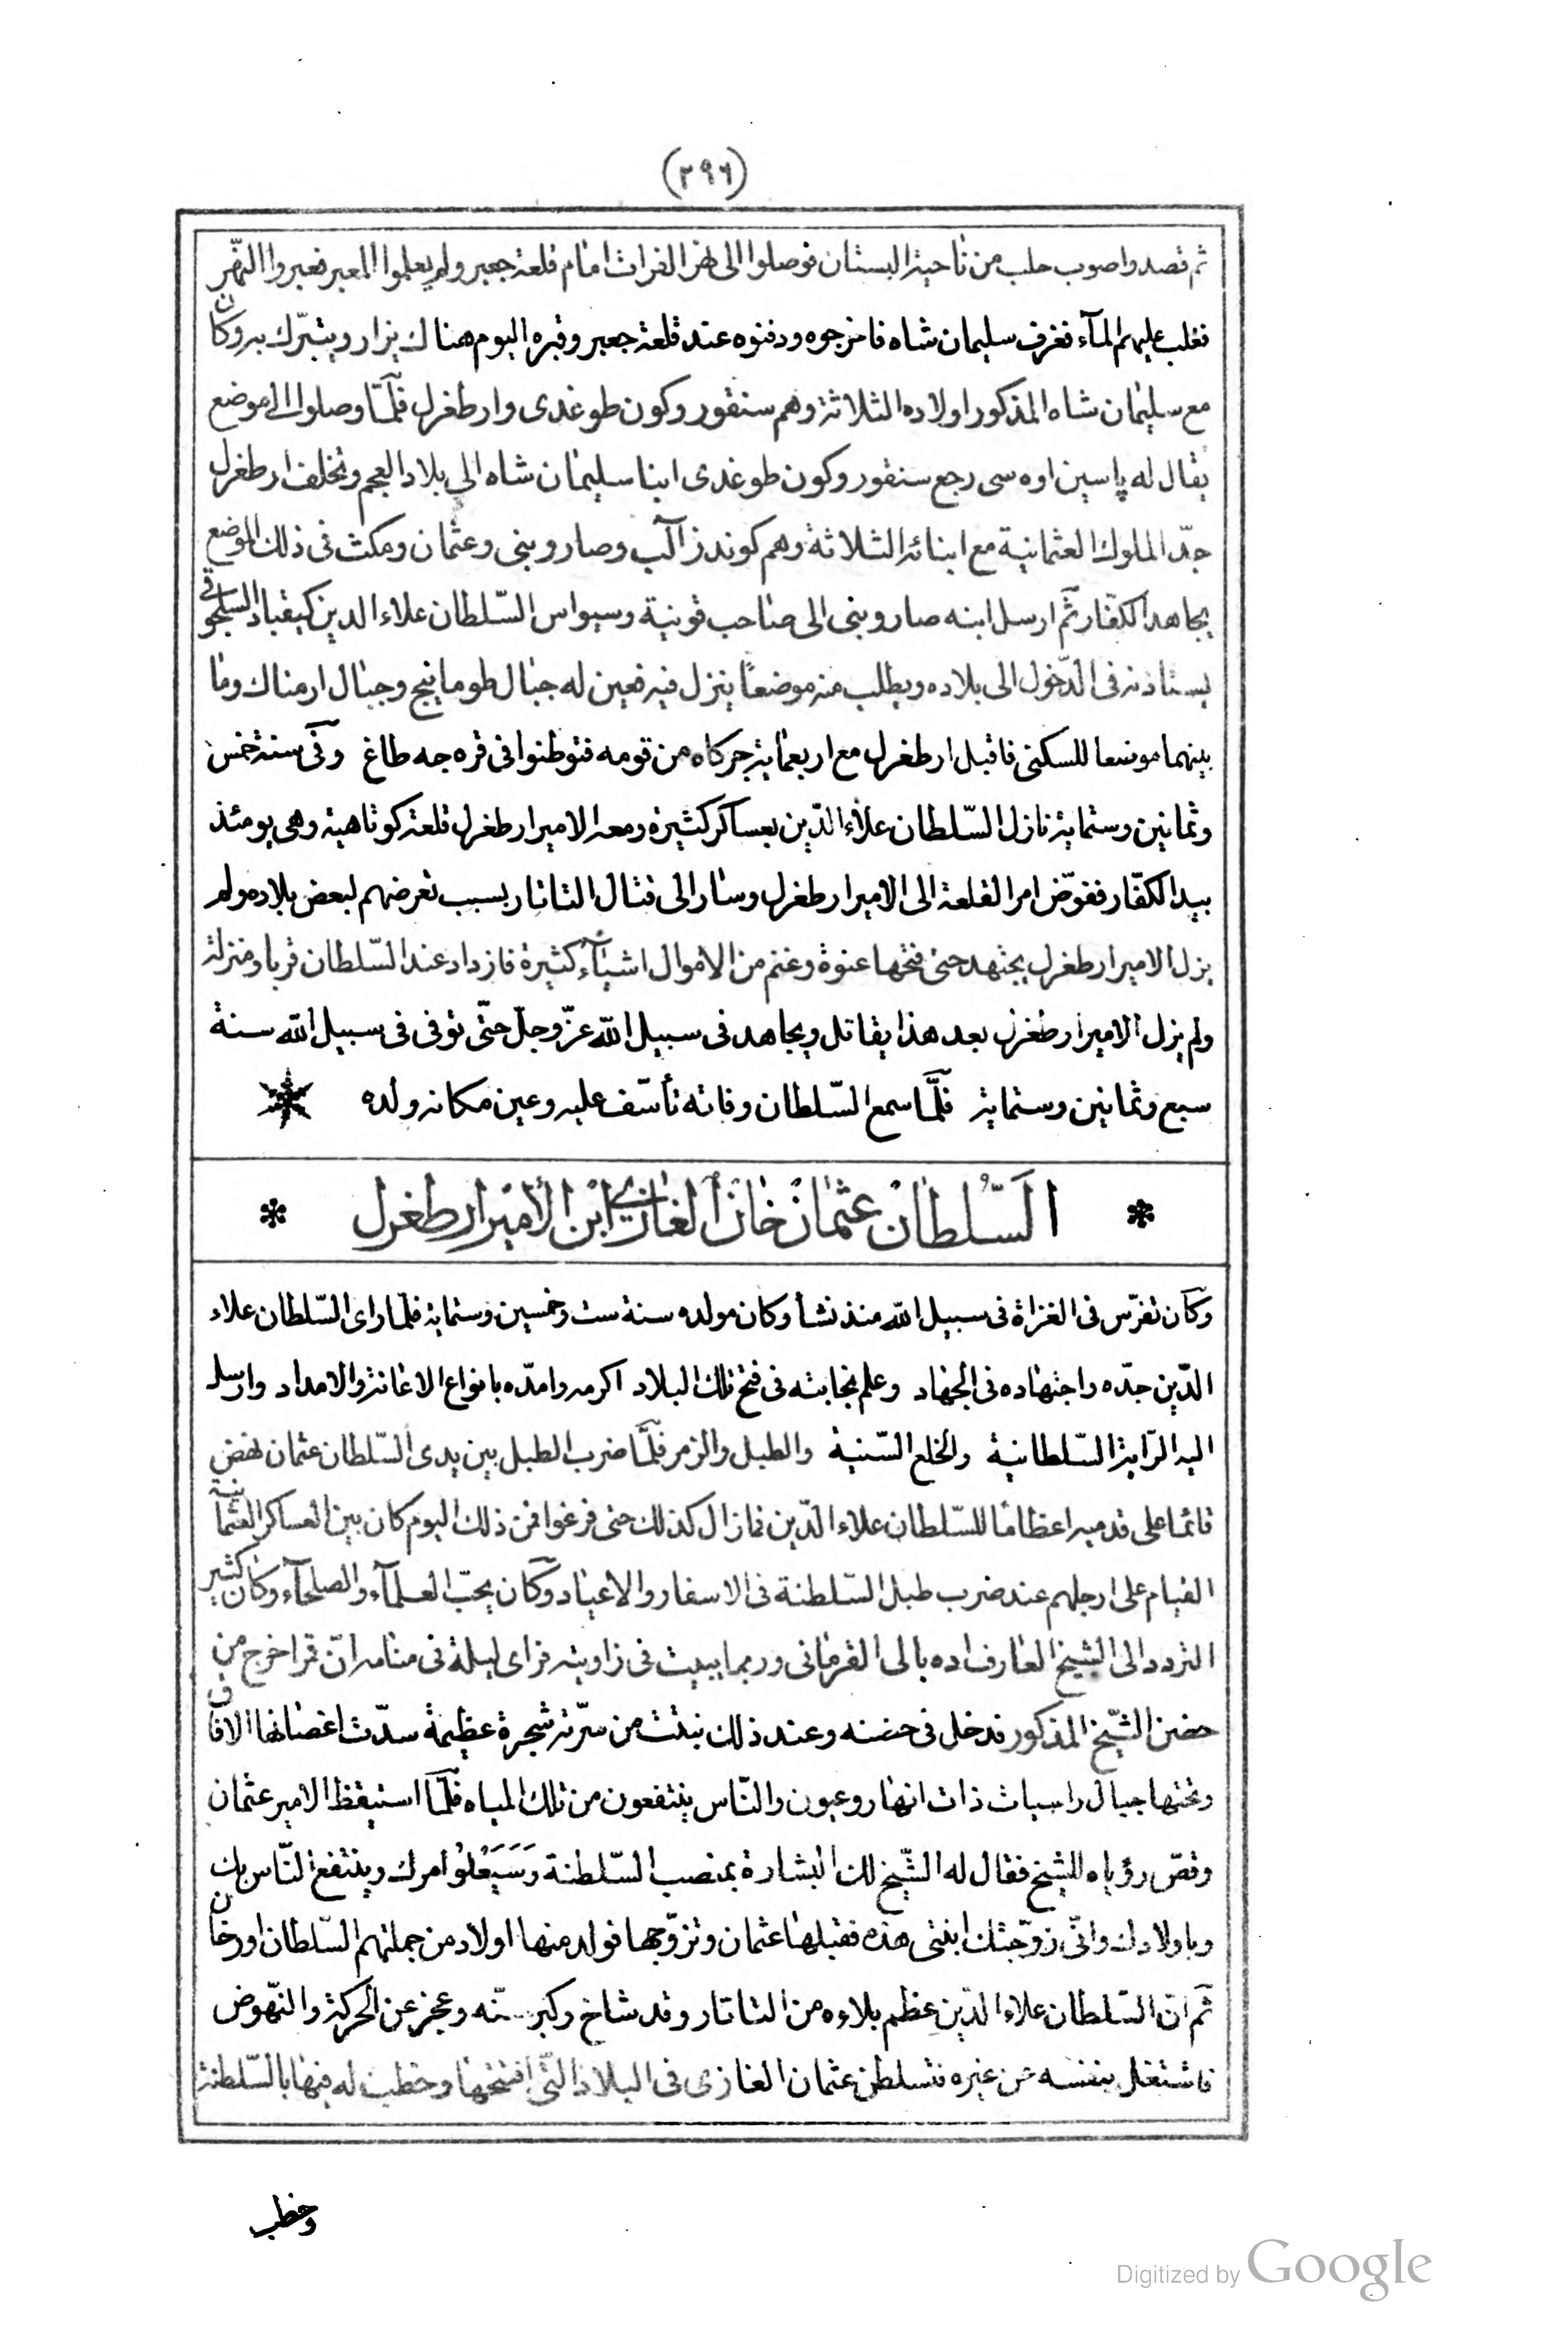 (٢٩٦)
ثم قصدوا صوب حلب من ناحية البستان فوصلوا الى نهر الفرات امام قلعة جعبر ولم يعلموا المعبر فعبروا النهر
فغلب عليهم المآء فغرق سليمان شاه فاخرجوه ودفنوه عند قلعة جعبر وقبره اليوم هناك يزار ويتبرّك به وكان
مع سليمان شاه المذكور اولاده الثلاثة وهم سنقور وكون طوغدى وارطغرل فلمّا وصلوا الى موضع
يقال له پاسين اوه سى رجع سنقور وكون طوغدى ابنا سليمان شاه الى بلاد العجم وتخلف ارطغرل
جدّ الملوك العثمانية مع ابنائه الثلاثة وهم كوندز آلپ وصارو بنى وعثمان ومكث فى ذلك الموضع
يجاهد الكفّار ثمّ ارسل ابنه صارو بنى الى صاحب قونية وسيواس السّلطان علاء الدين كيقباد السلجوقى
يستاذنه فى الدّخول الى بلاده ويطلب منه موضعًا ينزل فيه فعين له جبال طومانيج وجبال ارمناك وما
بينهما موضعا للسكنى فاقبل ارطغرل مع اربعماية جركاه من قومه فتوطنوا فى قره جه طاغ وفى سنة خمس
وثمانين وستماية نازل السّلطان علاء الدّين بعساكر كثيرة ومعه الامير ارطغرل قلعة كوتاهية وهى يومئذ
بيد الكفّار ففوّض امر القلعة الى الامير ارطغرل وسار الى قتال التاتار بسبب تعرضهم لبعض بلاده ولم
يزل الامير ارطغرل يجتهد حتى فتحها عنوة وغنم من الاموال اشيآء كثيرة فازداد عند السّلطان قربا ومنزلة
ولم يزل الامير ارطغرل بعد هذا يقاتل ويجاهد فى سبيل الله عزّ وجلّ حتّى توفى فى سبيل الله سنة
سبع وثمانين وستماية فلمّا سمع السّلطان وفاته تأسّف عليه وعين مكانه ولده
السّلطان عثمان خان الغازى ابن الأمير ارطغرل
وكان تفرّس فى الغزاة فى سبيل الله منذ نشأ وكان مولده سنة ست وخمسين وستماية فلما راى السّلطان علاء
الدّين جدّه واجتهاده فى الجهاد وعلم نجابته فى فتح تلك البلاد اكرمه وامدّه بانواع الاغانة والامداد وارسل
اليه الرّاية السّلطانية والخلع السّنية والطبل والزمر فلمّا ضرب الطبل بين يدى السّلطان عثمان نهض
قائما على قدميه اعظاما للسّلطان علاء الدّين فمازال كذلك حتى فرغوا فمن ذلك اليوم كان بين العساكر العثمانية
القيام على ارجلهم عند ضرب طبل السّلطنة فى الاسفار والاعياد وكان يحبّ العلمآء والصلحآء وكان كثير
التردد الى الشيخ العارف اده بالى القرمانى وربما يبيت فى زاويته فراى ليلة فى منامه انّ قمرا خرج من
حضن الشّيخ المذكور فدخل فى حضنه وعند ذلك نبتت من سرّته شجرة عظيمة سدّت اغصانها الافاق
وتحتها جبال راسيات ذات انهار وعيون والنّاس ينتفعون من تلك المياه فلمّا استيقظ الامير عثمان
وقصّ رؤياه للشيخ فقال له الشّيخ لك البشارة بمنصب السّلطنة وَسَيَعْلُوا امرك وينتفع النّاس بك
وباولادك وانّى زوّجتك ابنتى هذه فقبلها عثمان وتزوّجها فولد منها اولاد من جملتهم السّلطان اورخان
ثم انّ السّلطان علاء الدّين عظم بلاءه من التاتار وقد شاخ وكبر سنّه وعجز عن الحركة والنّهوض
فاشتغل بنفسه عن غيره فتسلطن عثمان الغازى فى البلاد التّى افتتحها وخطب له فيها بالسّلطنة
وخطب
Digitized by Google